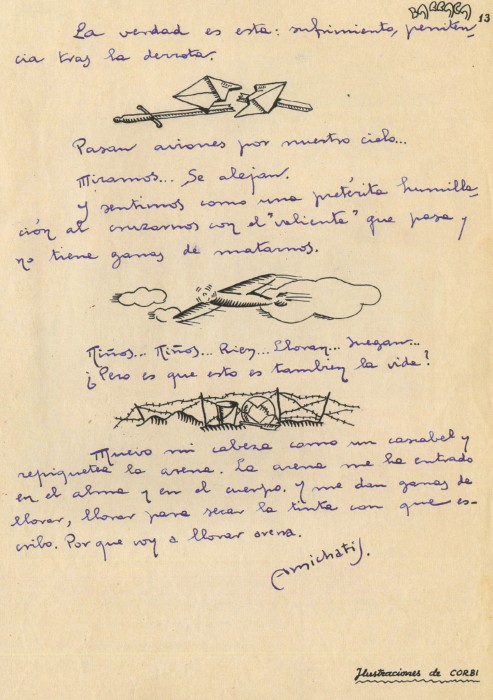 BARRACA 13
La verdad es esta: sufrimiento, peniten-
cia tras la derrota.
Pasan aviones por nuestro cielo...
Miramos... Se alejan.
Y sentimos como una pretérita humilla-
ción al cruzarnos con el "valiente" que pasa y
no tiene ganas de matarnos.
Niños... Niños... Rien... Lloran... Juegan...
¿Pero es que esto es tambien la vida?
Muevo mi cabeza como un cascabel y
repiquetea la arena. La arena me ha entrado
en el alma y en el cuerpo. Y me dan ganas de
llorar, llorar para secar la tinta con que es-
cribo. Por que voy a llorar arena.
Amichatis.
Ilustraciones de CORBI